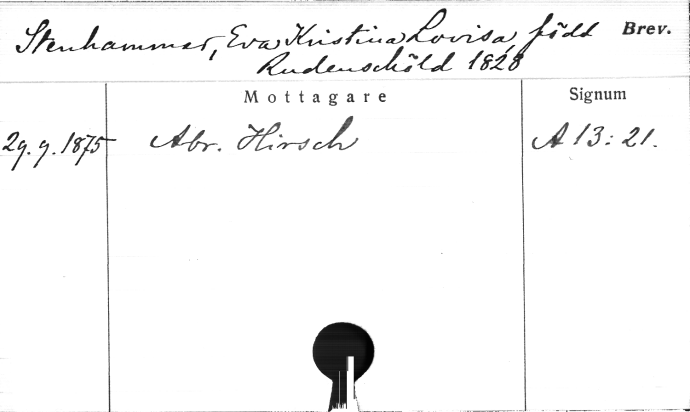 Stenhammar, Eva Kristina Lovisa, född Brev.
Rudenschöld 1828
Mottagare Signum
29.9.1875 Abr. Hirsch A 13:21.